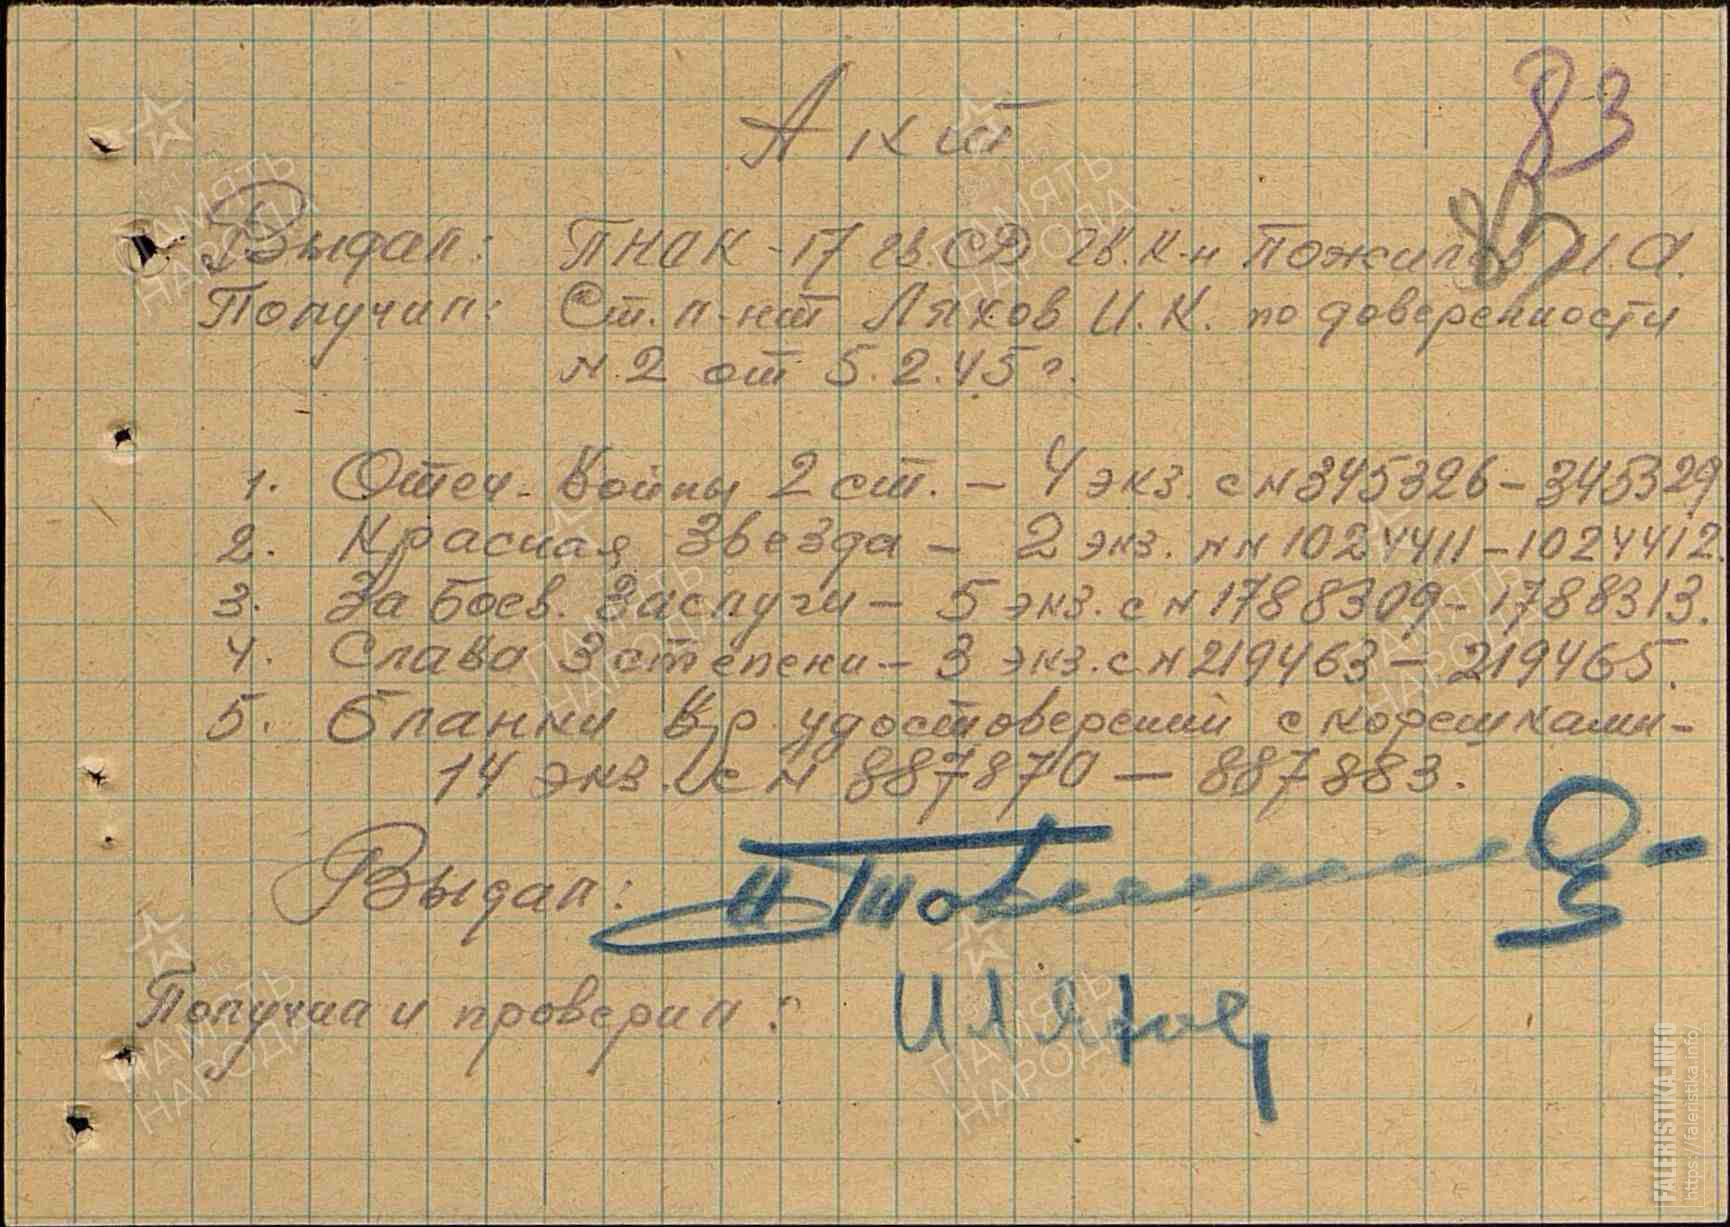 83
Акт
Выдал: ПНАК-17 гв.СД гв.К-н Пожилов И.А.
Получил: Ст. л-нт Ляхов И.К. по доверенности
N.2 от 5.2.45г.
1. Отеч. Войны 2 ст. – 4 экз. с N 345326 – 345329
2. Красная Звезда – 2 экз. NN 1024411 – 1024412.
3. За боев. Заслуги – 5 экз. с N 1788309 – 1788313.
4. Слава 3 степени – 3 экз. с N 219463 – 219465.
5. Бланки Вр. удостоверений с корешками –
14 экз. с N 887870 — 887883.
Выдал:
Получил и проверил:
ПАМЯТЬ НАРОДА
FALERISTIKA.INFO
https://faleristika.info